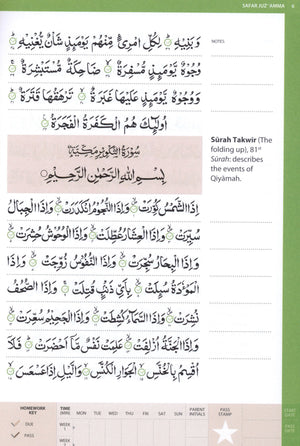 SAFAR JUZ' 'AMMA
6
NOTES
وَبَنِيهِ ۝ لِكُلِّ امْرِئٍ مِّنْهُمْ يَوْمَئِذٍ شَأْنٌ يُّغْنِيهِ ۝
وُجُوهٌ يَّوْمَئِذٍ مُّسْفِرَةٌ ۝ ضَاحِكَةٌ مُّسْتَبْشِرَةٌ ۝
وَوُجُوهٌ يَّوْمَئِذٍ عَلَيْهَا غَبَرَةٌ ۝ تَرْهَقُهَا قَتَرَةٌ ۝
أُولَٰئِكَ هُمُ الْكَفَرَةُ الْفَجَرَةُ ۝
سُورَةُ التَّكْوِيرِ مَكِّيَّةٌ
بِسْمِ اللهِ الرَّحْمٰنِ الرَّحِيْمِ
Sūrah Takwīr (The
folding up), 81st
Sūrah: describes
the events of
Qiyāmah.
إِذَا الشَّمْسُ كُوِّرَتْ ۝ وَإِذَا النُّجُومُ انْكَدَرَتْ ۝ وَإِذَا الْجِبَالُ
سُيِّرَتْ ۝ وَإِذَا الْعِشَارُ عُطِّلَتْ ۝ وَإِذَا الْوُحُوشُ حُشِرَتْ ۝
وَإِذَا الْبِحَارُ سُجِّرَتْ ۝ وَإِذَا النُّفُوسُ زُوِّجَتْ ۝ وَإِذَا
الْمَوْءُدَةُ سُئِلَتْ ۝ بِأَيِّ ذَنْبٍ قُتِلَتْ ۝ وَإِذَا الصُّحُفُ
نُشِرَتْ ۝ وَإِذَا السَّمَاءُ كُشِطَتْ ۝ وَإِذَا الْجَحِيمُ سُعِّرَتْ ۝
وَإِذَا الْجَنَّةُ أُزْلِفَتْ ۝ عَلِمَتْ نَفْسٌ مَّا أَحْضَرَتْ ۝ فَلَا
أُقْسِمُ بِالْخُنَّسِ ۝ الْجَوَارِ الْكُنَّسِ ۝ وَاللَّيْلِ إِذَا عَسْعَسَ ۝
HOMEWORK KEY
TIME (MIN) MON TUE WED THU FRI SAT SUN
PARENT INITIALS
PASS STAMP
START DATE
DUE
PASS
WEEK 1
WEEK 2
PASS DATE